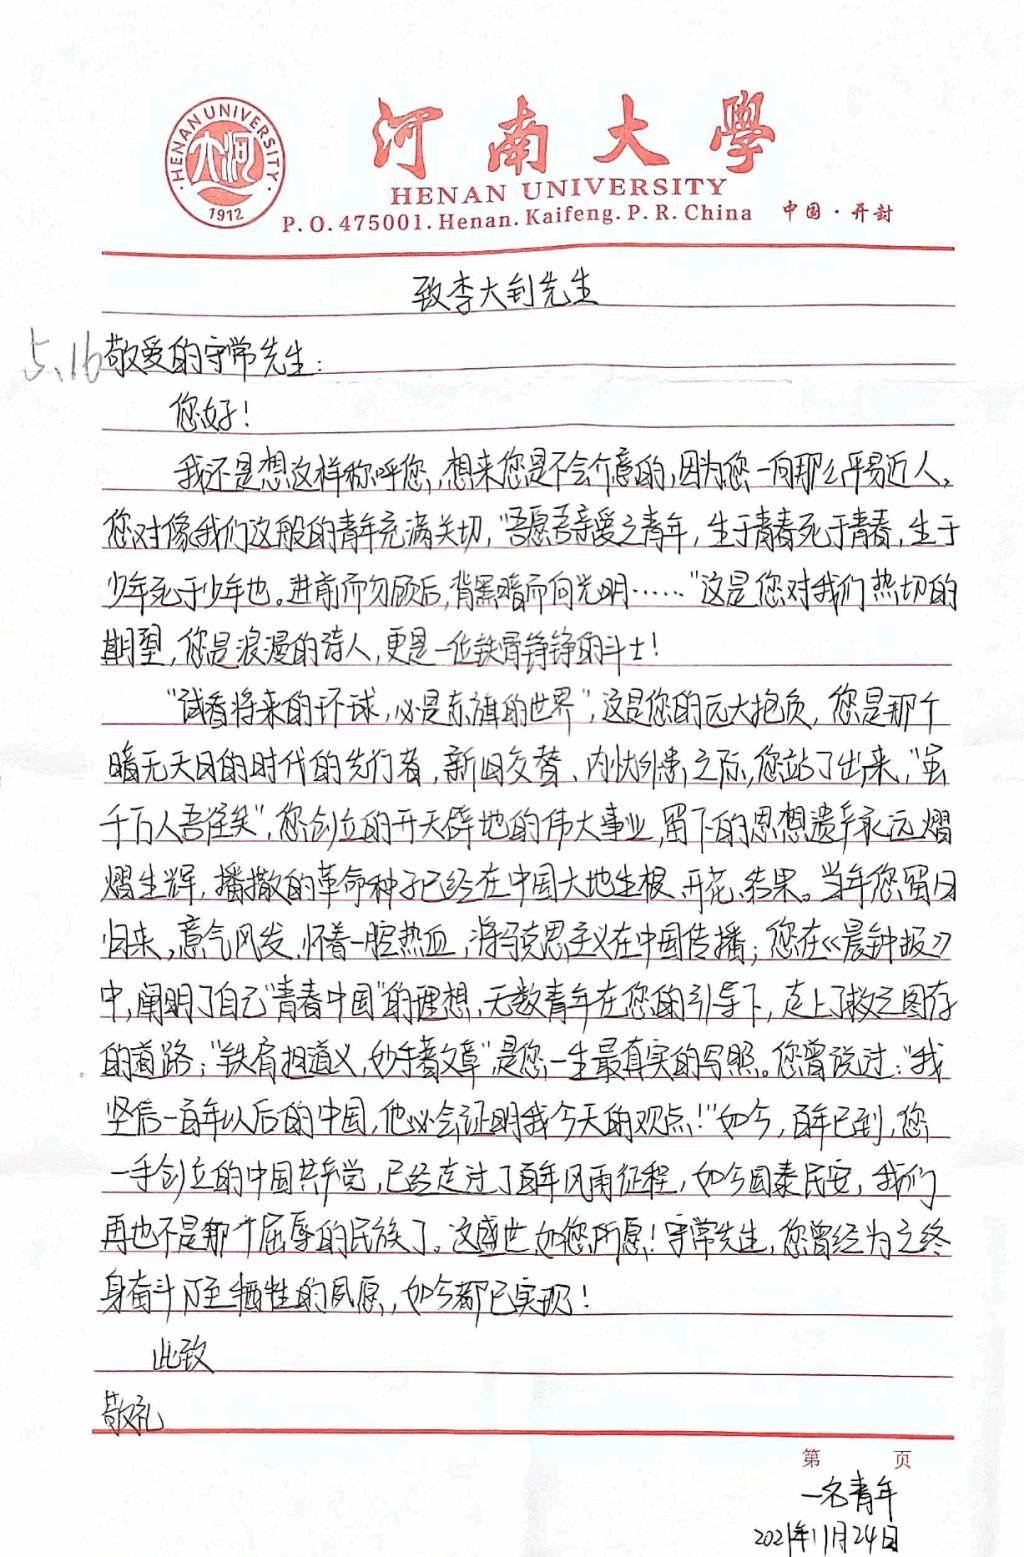 HENAN UNIVERSITY
大河
1912
河南大學
HENAN UNIVERSITY
P.O.475001.Henan.Kaifeng.P.R.China 中国·开封
致李大钊先生
5.16
敬爱的守常先生：
您好！
我还是想这样称呼您，想来您是不会介意的，因为您一向那么平易近人，
您对像我们这般的青年充满关切，“吾愿吾亲爱之青年，生于青春死于青春，生于
少年死于少年也。进前而勿顾后，背黑暗而向光明……”这是您对我们热切的
期望，您是浪漫的诗人，更是一位铁骨铮铮的斗士！
“试看将来的环球，必是赤旗的世界”，这是您的远大抱负，您是那个
暗无天日的时代的先行者，新旧交替、内忧外患之际，您站了出来，“虽
千万人吾往矣”，您创立的开天辟地的伟大事业，留下的思想遗产永远熠
熠生辉，播撒的革命种子已经在中国大地生根、开花、结果。当年您留日
归来，意气风发，怀着一腔热血，将马克思主义在中国传播；您在《晨钟报》
中，阐明了自己“青春中国”的理想，无数青年在您的引导下，走上了救亡图存
的道路；“铁肩担道义，妙手著文章”是您一生最真实的写照。您曾说过：“我
坚信一百年以后的中国，他必会证明我今天的观点！”如今，百年已到，您
一手创立的中国共产党，已经走过了百年风雨征程，如今国泰民安，我们
再也不是那个屈辱的民族了。这盛世如您所愿！守常先生，您曾经为之终
身奋斗乃至牺牲的夙愿，如今都已实现！
此致
敬礼
第 页
一名青年
2021年11月24日